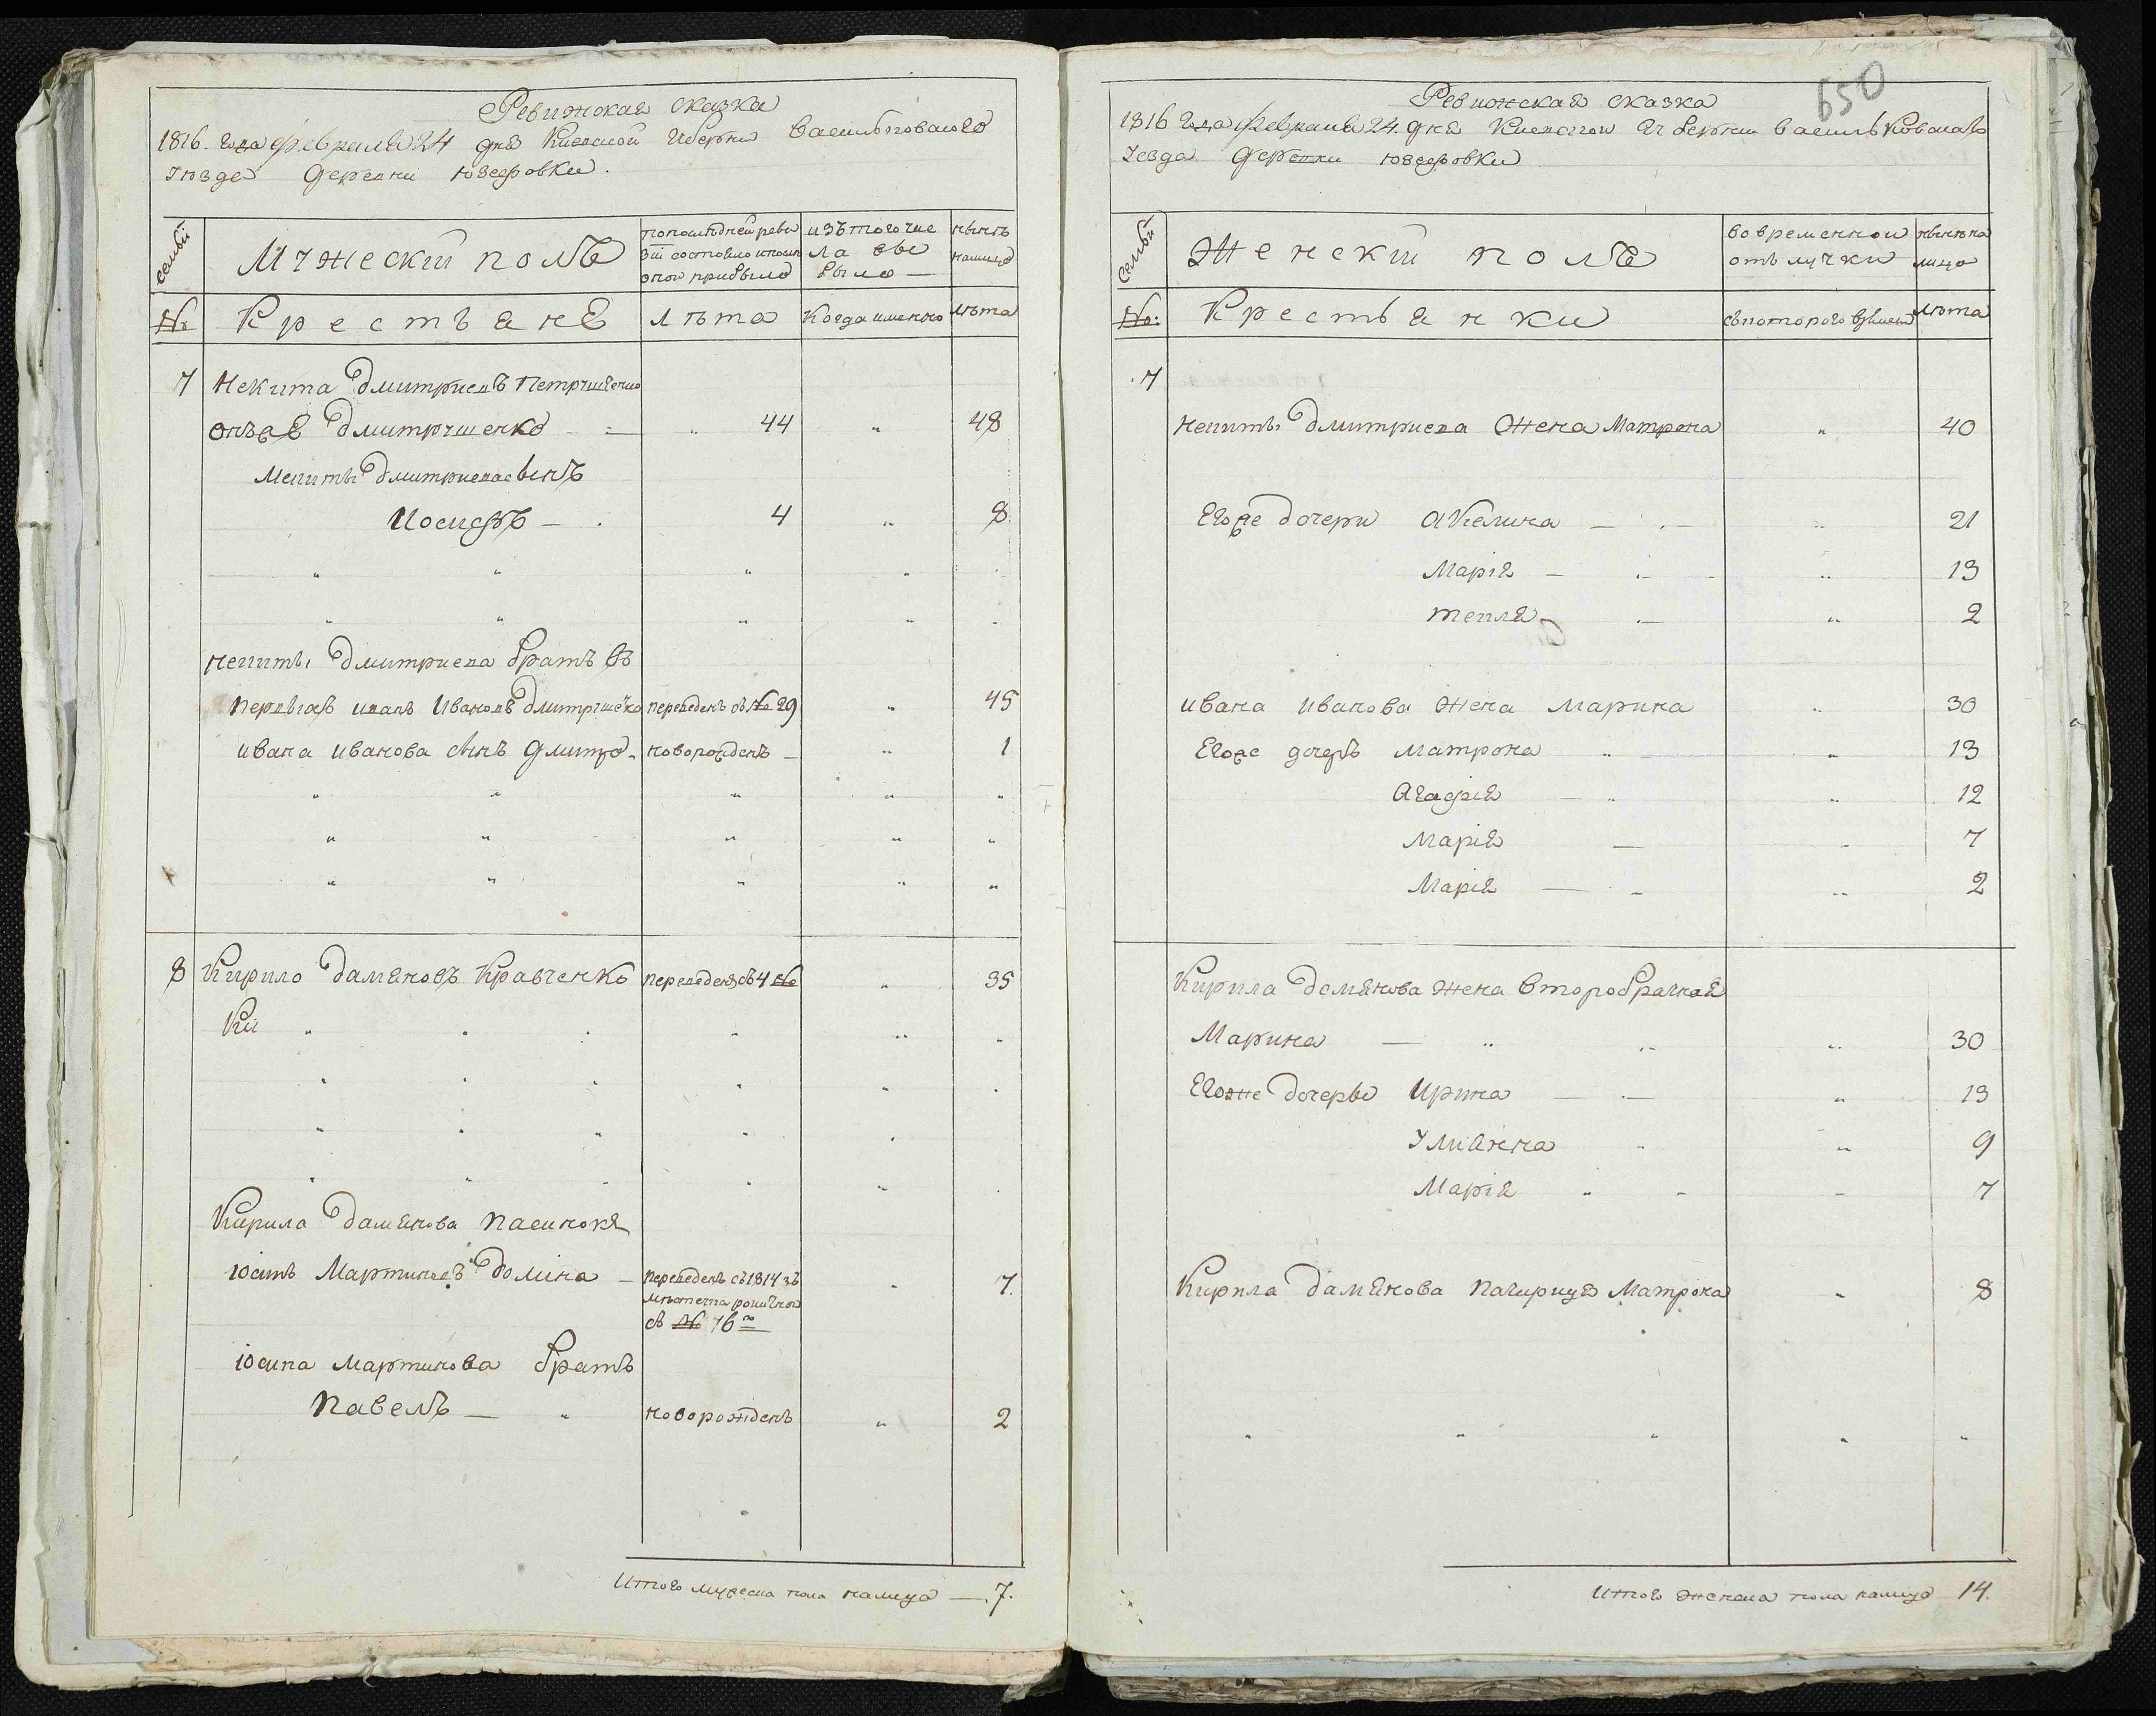 Ревижская сказка
1816. года февраля 24 дня Киевской губернии Васильковского
уезде деревни Юзефовки.
семьи
Мужеский полъ
по последней реви
зіи состояло и после
оной прибыло
изъ того чис
ла вы
было
нынѣ
налицо
№
Крестьяне
лѣта
когда именно
лѣта
7
Некита Дмитриевъ Петрушенко
онъже Дмитрушенко
44
"
48
Некиты Дмитриева сынъ
Иосифъ
4
"
8
Некиты Дмитриева братъ въ
первыхъ иванъ Ивановъ Дмитрушенко
переведенъ съ № 29
"
45
ивана иванова сынъ дмитро
новорожденъ
"
1
8
Кирило Дамяновъ Кравченко
переведенъ съ 4 №
"
35
Ки
Кирила Дамянова пасинокъ
юсипъ Мартиновъ Долина
переведенъ съ 1814 зъ
мѣстечка
съ № 76го
7.
юсипа Мартинова братъ
Павелъ
новорожденъ
"
2
Итого мужеска пола налицо — 7.
650
Ревижская сказка
1816 года февраля 24. дня Киевской губернии васильковскаго
уезда деревни юзефовки
семьи
Женский полъ
во временной
отълучки
нынѣ на
лицо
№:
Крестьянки
съ которого времени
лѣта
7
Некиты Дмитриева жена Матрона
"
40
Егоже дочери Акилина
"
21
Марія
"
13
Текля
"
2
ивана иванова жена марина
"
30
Егоже дочерь матрона
"
13
Агафія
"
12
Марія
7
Марія
"
2
Кирила Дамянова жена второбрачная
Марина
"
30
Егоже дочеры Ирина
"
13
Улианна
"
9
Марія
7
Кирила Дамянова пачирица Матрона
"
8
Итого женска пола налицо 14.